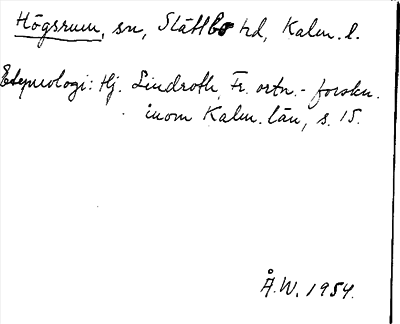 Högsrum, sn, Slättbo hd, Kalm. l.
Etymologi: Hj. Lindroth, Fr. ortn.-forskn.
inom Kalm. län, s. 15.
Å.W. 1954.